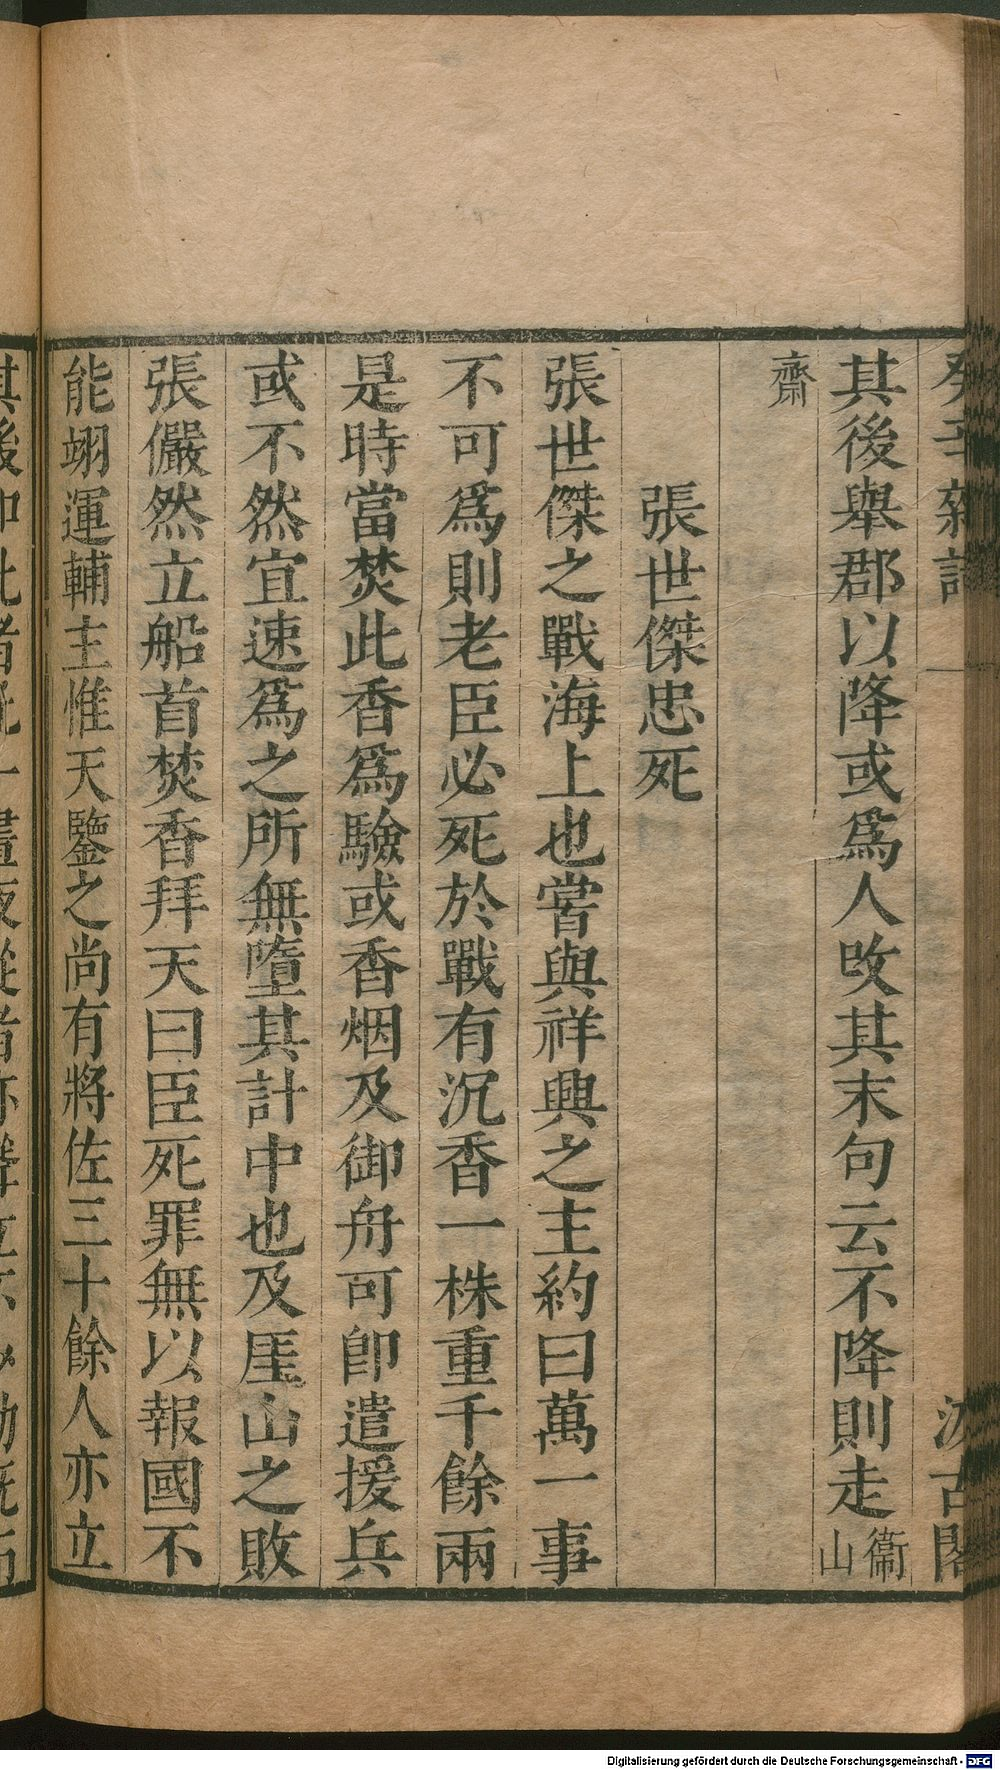 癸辛雜識 一 汲古閣
其後舉郡以降或爲人改其末句云不降則走衞山
齋
張世傑忠死
張世傑之戰海上也嘗與祥興之主約曰萬一事
不可爲則老臣必死於戰有沉香一株重千餘兩
是時當焚此香爲驗或香烟及御舟可卽遣援兵
或不然宜速爲之所無墮其計中也及厓山之敗
張儼然立船首焚香拜天曰臣死罪無以報國不
能翊運輔主惟天鑒之尚有將佐三十餘人亦立
Digitalisierung gefördert durch die Deutsche Forschungsgemeinschaft - DFG